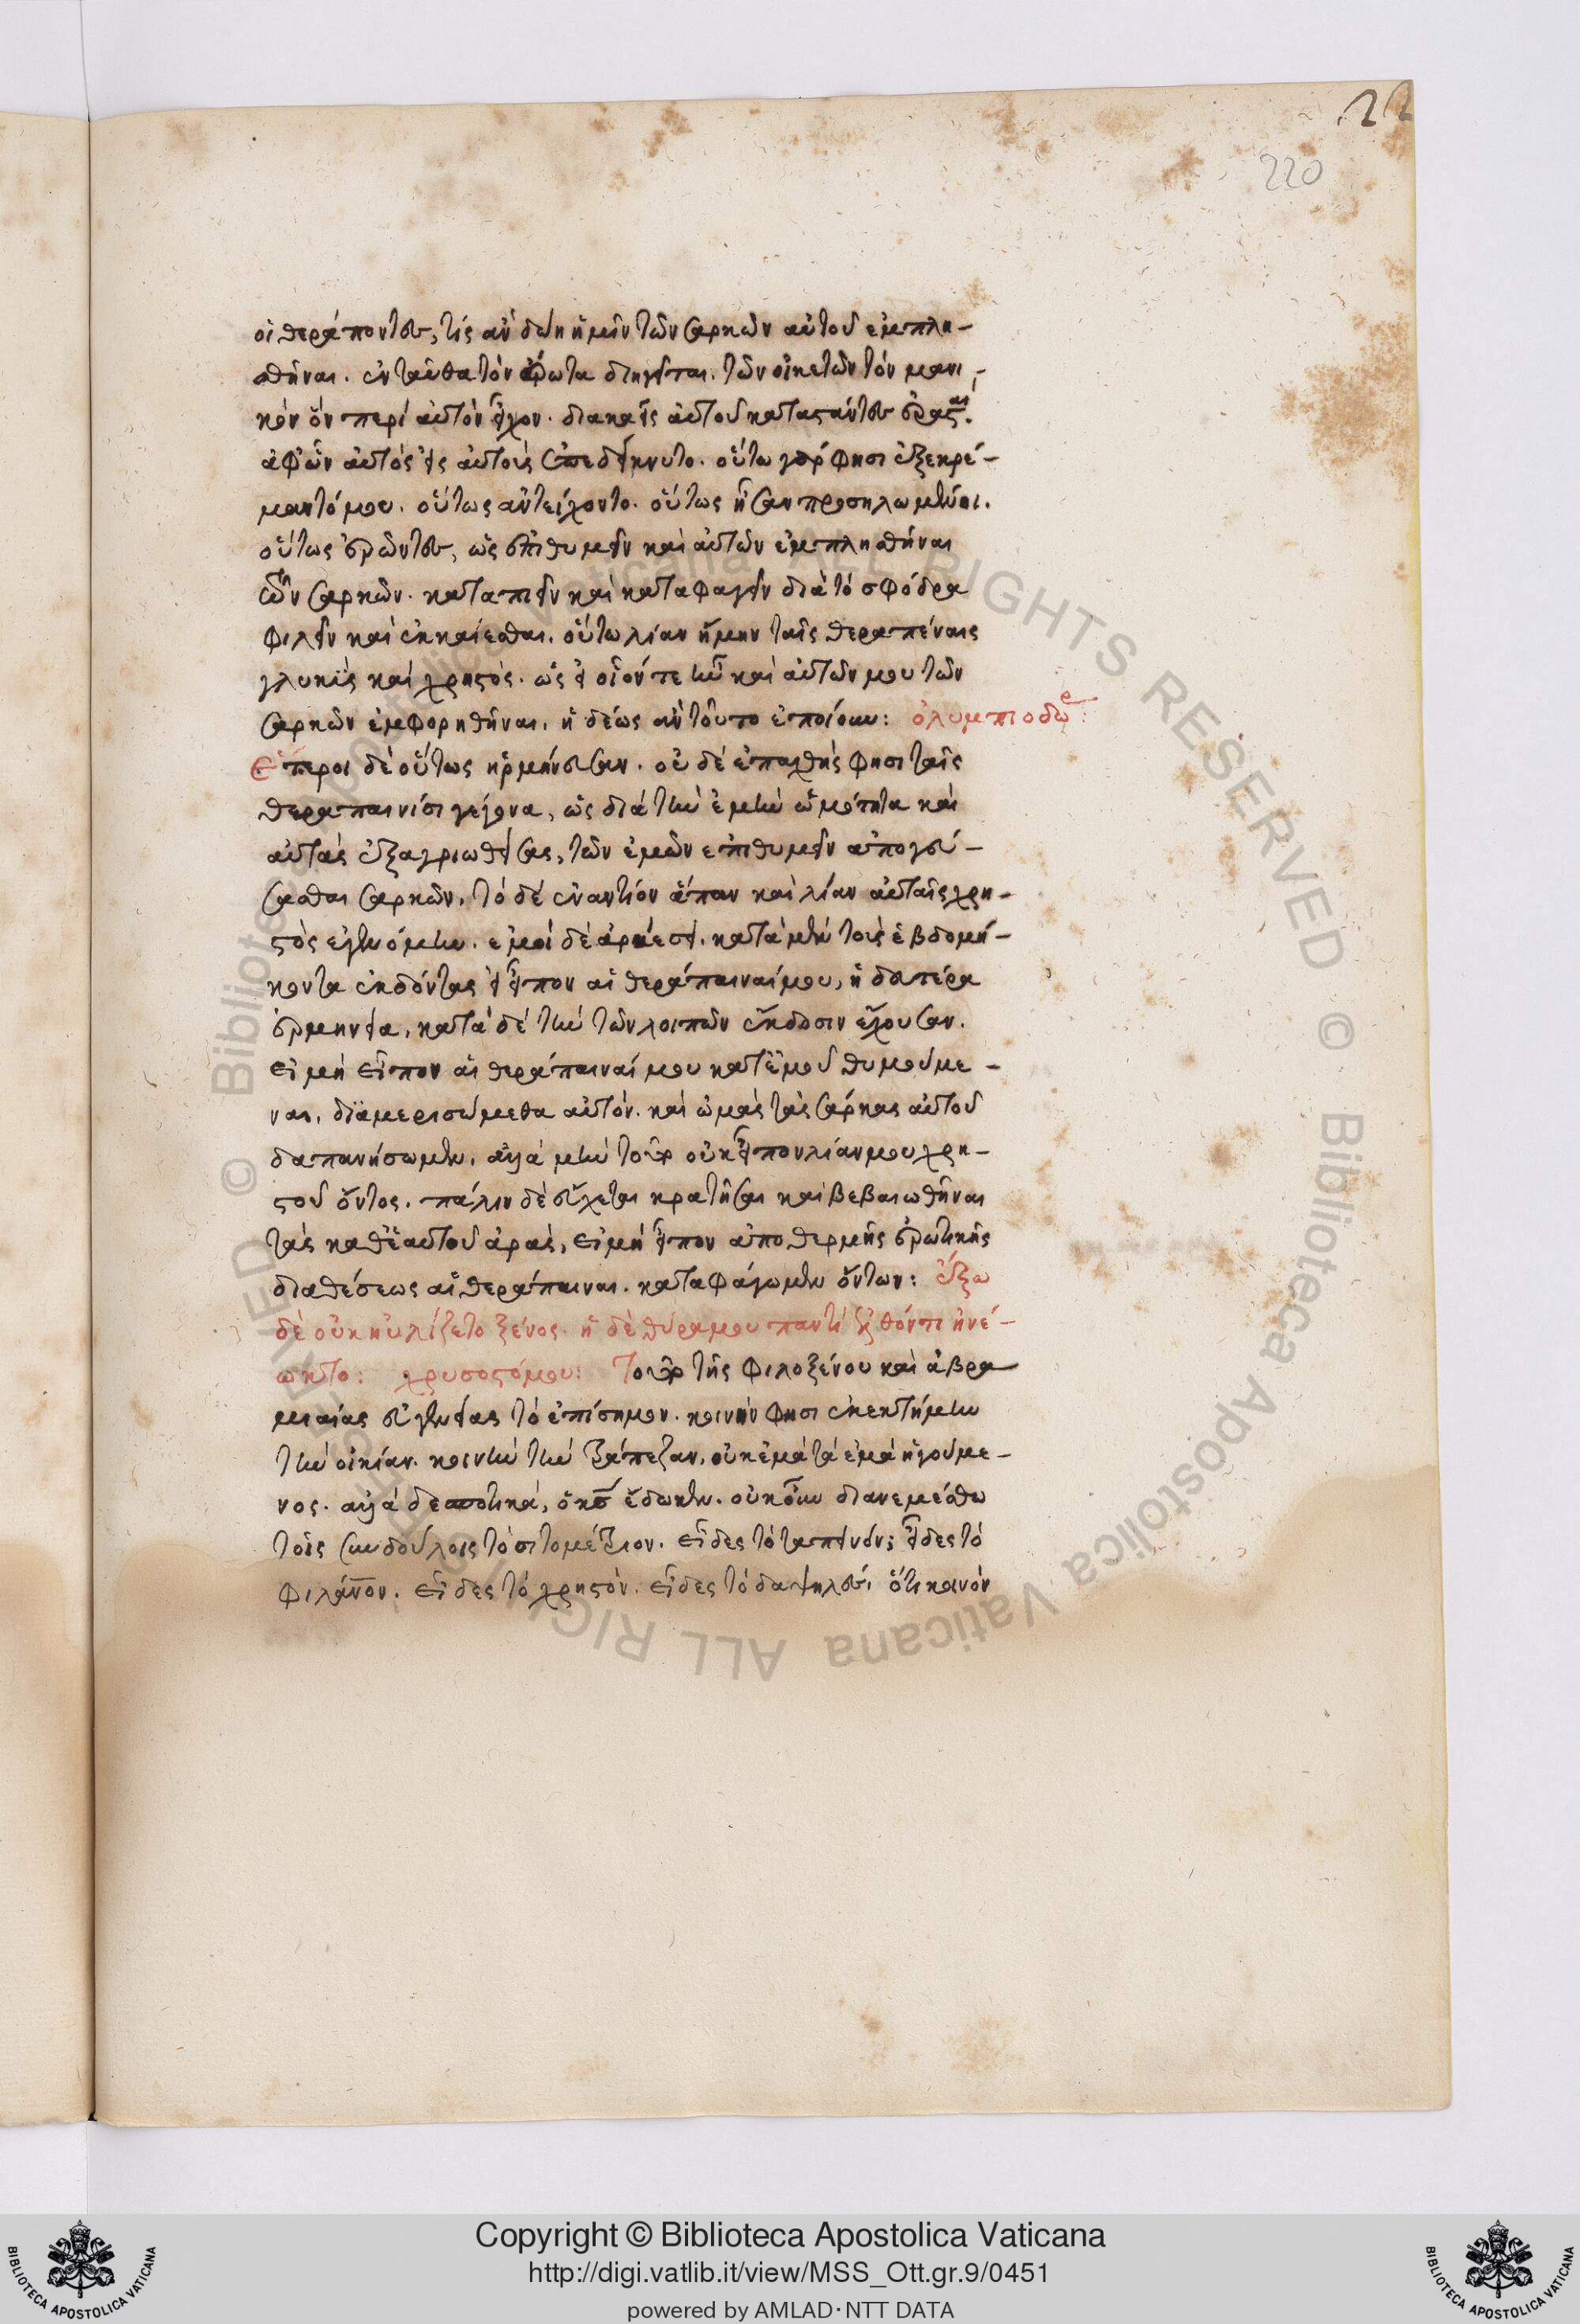 22
220
οἱ θεράποντες, τίς ἂν δώη ἡμῖν τῶν σαρκῶν αὐτοῦ ἐμπλη-
σθῆναι. ἐνταῦθα τὸν ἔρωτα διηγεῖται. τῶν οἰκετῶν τὸν μανι-
κὸν ὃν περὶ αὐτὸν εἶχον.
ἀφ' ὧν αὐτὸς εἰς αὐτοὺς ἐπεδείκνυτο. οὕτω γάρ φησι ἐξεκρέ-
μαντό μου. οὕτως ἀντείχοντο. οὕτως ἦσαν προσηλωμένοι.
οὕτως ἐρῶντες, ὡς ἐπιθυμεῖν καὶ αὐτῶν ἐμπλησθῆναι
τῶν σαρκῶν. καταπιεῖν καὶ καταφαγεῖν διὰ τὸ σφόδρα
φιλεῖν καὶ ἐκκαίεσθαι. οὕτω λίαν ἤμην ταῖς θεραπέναις
γλυκὺς καὶ χρηστός. ὡς εἰ οἷόν τε ἦν καὶ αὐτῶν μου τῶν
σαρκῶν ἐμφορηθῆναι, ἡδέως ἂν τοῦτο ἐποίουν: ὀλυμπιοδώρ:
ἕτεροι δὲ οὕτως ἡρμήνευσαν. οὐδὲ ἐπαχθής φησι ταῖς
θεραπαινίσι γέγονα, ὡς διὰ τὴν ἐμὴν ὠμότητα καὶ
αὐτὰς ἐξαγριωθείσας, τῶν ἐμῶν ἐπιθυμεῖν ἀπογεύ-
σασθαι σαρκῶν, τὸ δὲ ἐναντίον ἅπαν καὶ λίαν αὐταῖς χρη-
στὸς ἐγενόμην. ἐμοὶ δὲ ἀρκέσει. κατὰ μὲν τοὺς ἑβδομή-
κοντα ἐκδόντας εἰ εἶπον αἱ θεράπαιναί μου, ἡ δευτέρα
ἑρμηνεία, κατὰ δὲ τὴν τῶν λοιπῶν ἔκδοσιν ἔχουσαν.
εἰ μὴ εἶπον αἱ θεράπαιναί μου κατ' ἐμοῦ θυμούμε-
ναι, διαμερισώμεθα αὐτόν. καὶ ὠμὰς τὰς σάρκας αὐτοῦ
δαπανήσωμεν, ἀλλὰ μὴν τοῦτο οὐκ εἶπον λίαν μου χρη-
στοῦ ὄντος. πάλιν δὲ εὔχεται κρατῆσαι καὶ βεβαιωθῆναι
τὰς καθ' ἑαυτοῦ ἀράς, εἰ μὴ εἶπον ἀπὸ θερμῆς ἐρωτικῆς
διαθέσεως αἱ θεράπαιναι. καταφάγωμεν ὄντων: ἔξω
δὲ οὐκ ηὐλίζετο ξένος. ἡ δὲ θύρα μου παντὶ ἐλθόντι ἠνέ-
ωκτο: χρυσοστόμου: Τοῦτο τῆς φιλοξένου καὶ ἀβρα
μιαίας εὐγενείας τὸ ἐπίσημον. κοινήν φησι ἐκεκτήμην
τὴν οἰκίαν. κοινὴν τὴν τράπεζαν, οὐκ ἐμὰ τὰ ἐμὰ ἡγούμε-
νος. ἀλλὰ δεσποτικά, ὁ κς ἔδωκεν. οὐκοῦν διανεμέσθω
τοῖς συνδούλοις τὸ σιτομέτριον. εἶδες τὸ ταπεινόν; εἶδες τὸ
φιλάνον. εἶδες τὸ χρηστόν. εἶδες τὸ δαψιλές, ὅτι κανὸν
Copyright © Biblioteca Apostolica Vaticana
http://digi.vatlib.it/view/MSS_Ott.gr.9/0451
powered by AMLAD·NTT DATA